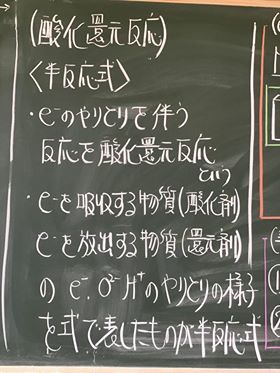 (酸化還元反応)
〈半反応式〉
・e⁻のやりとりを伴う
反応を酸化還元反応
という
・e⁻を吸収する物質(酸化剤)
e⁻を放出する物質(還元剤)
の e⁻. O²⁻ H⁺のやりとりの様子
を式で表したものが半反応式